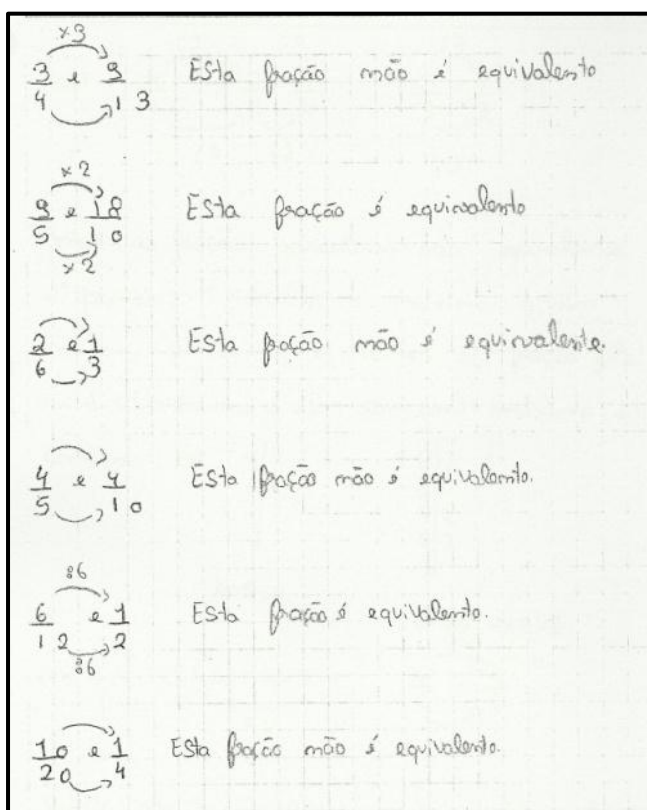 ×3
3/4 e 9/13 Esta fração não é equivalento
×2
9/5 e 18/10 Esta fração é equivalento
×2
2/6 e 1/3 Esta fração não é equivalente.
4/5 e 4/10 Esta fração não é equivalento.
:6
6/12 e 1/2 Esta fração é equivalento.
:6
10/20 e 1/4 Esta fração não é equivalento.